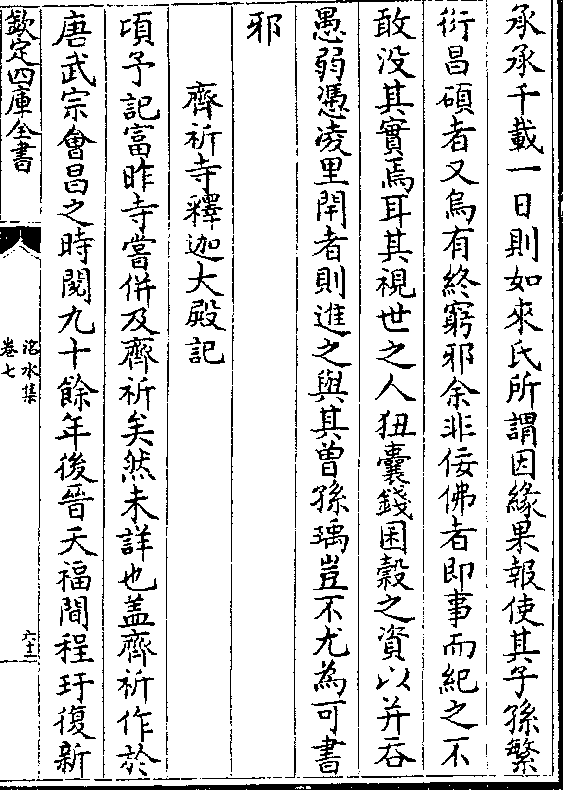 承承千載一日則如來氏所謂因緣果報使其子孫繁
衍昌碩者又烏有終窮邪余非佞佛者即事而紀之不
敢没其實焉耳其視世之人狃囊錢囷穀之資以并吞
愚弱憑凌里閈者則進之與其曽孫瑀豈不尤為可書
邪
齊祈寺釋迦大殿記
頃予記富昨寺嘗併及齊祈矣然未詳也盖齊祈作於
唐武宗會昌之時閱九十餘年後晉天福間程玗復新
欽定四庫全書
洺水集
卷七
六十二